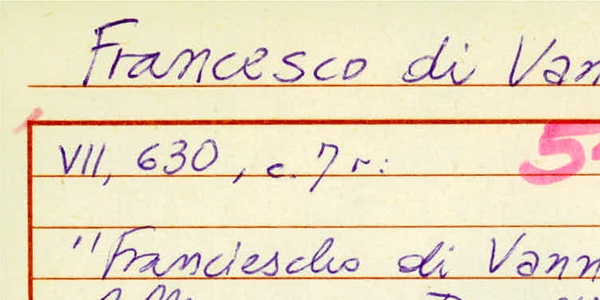 Francesco di Van
VII, 630, c. 7 r:
5
"Franciescho di Vann